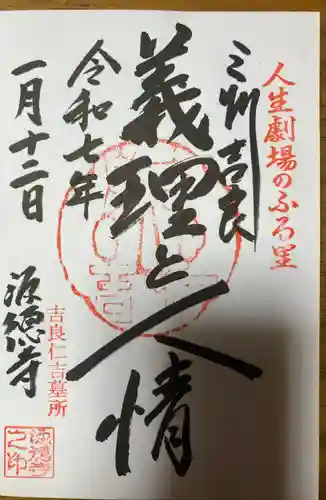 人生劇場のふる里
三州吉良
義理と人情
令和七年
一月十二日
源徳寺
吉良仁吉墓所
源徳寺之印